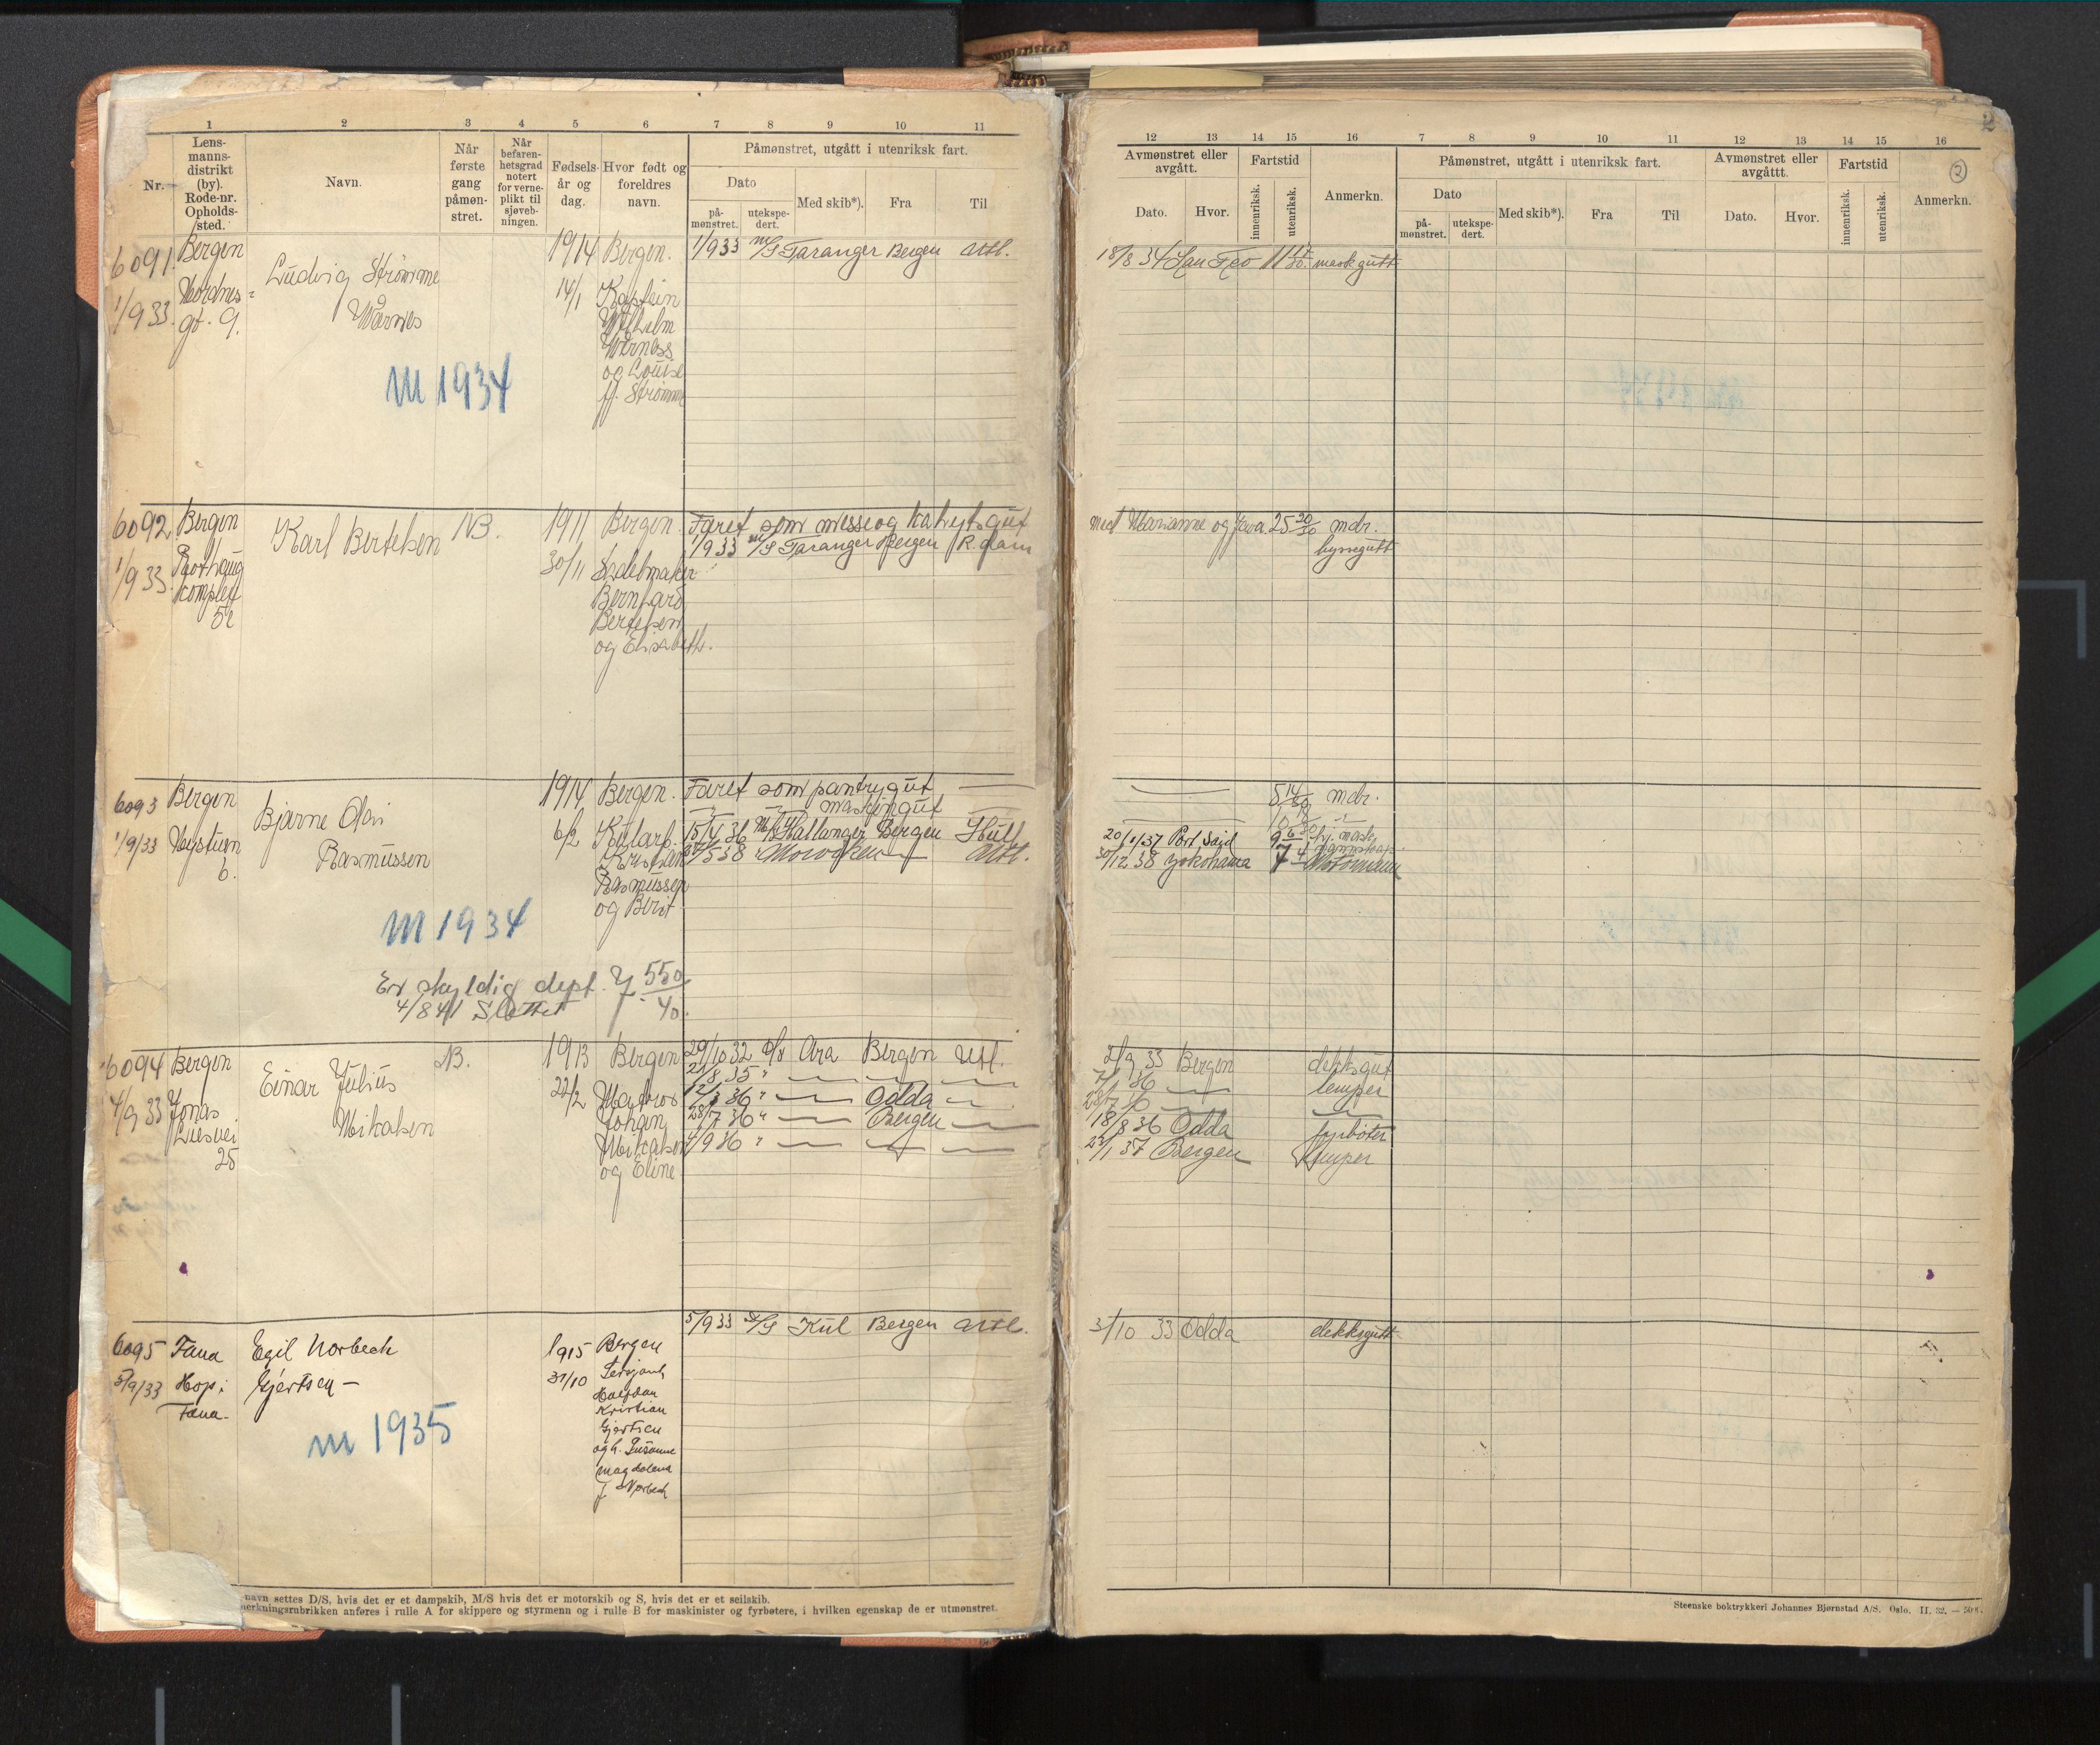 1 2 3 4 5 6 7 8 9 10 11
Nr.
Lens-
manns-
distrikt
(by).
Rode-nr.
Opholds-
sted.
Navn.
Når
første
gang
påmøn-
stret.
Når
befaren-
hetsgrad
notert
for verne-
plikt til
sjøveb-
ningen.
Fødsels-
år og
dag.
Hvor født og
foreldres
navn.
Påmønstret, utgått i utenriksk fart.
Dato
på-
mønstret.
utekspe-
dert.
Med skib*).
Fra
Til
6091.
1/9 33.
Bergen
Nordnes-
gt. 9.
Ludvig Strømme
Warnes
M 1934
1914
14/1
Bergen.
Kaptein
Wilhelm
og Louise
f. Strømme
1/9 33 M/S Taranger Bergen Utl.
6092
1/9 33.
Bergen
komplex
Karl Bertelsen
NB.
1911
30/11
Bergen.
Bernhard
Bertelsen
og Elisabeth.
Faret som messe og
1/9 33 M/S Taranger Bergen
6093
1/9 33
Bergen
6.
Bjarne Olai
Rasmussen
1914
6/2
Bergen.
Kristian
Rasmussen
og Berit
M 1934
Er skyldig dept. 550
4/8 41 Slottet 40.
Faret som pantrygut
maskingut
15/4 36 M/S Hallanger Bergen Hull
6094
4/9 33
Bergen
Jonas
Liesvei
25
Einar Julius
Mikalsen
NB.
1913
22/2
Bergen
Johan
Mikalsen
og Eline
29/10 32 D/S Ara Bergen Utl.
21/8 35 "
12/3 36 " Odda
28/7 36 " Bergen
4/9 36 "
6095
5/9/33
Fana
Hop i
Fana
Egil Norbech
Gjertsen
m 1935
1915
31/10
Bergen
Sersjant
Halfdan
Kristian
Gjertsen
og h. Susanne
Magdalena
f Norbech
5/9 33 D/S Kul Bergen Utl.
navn settes D/S, hvis det er et dampskib, M/S hvis det er motorskib og S, hvis det er et seilskib.
erkningsrubrikken anføres i rulle A for skippere og styrmenn og i rulle B for maskinister og fyrbøtere, i hvilken egenskap de er utmønstret.
2
12 13 14 15 16 7 8 9 10 11 12 13 14 15 16
Avmønstret eller
avgått.
Dato. Hvor.
Fartstid
innenriksk.
utenriksk.
Anmerkn.
Påmønstret, utgått i utenriksk fart.
Dato
på-
mønstret.
utekspe-
dert.
Med skib*).
Fra
Til
Avmønstret eller
avgåttt.
Dato. Hvor.
Fartstid
innenriksk.
utenriksk.
Anmerkn.
2
18/8 34 mask gutt
med Marianne og Java 25 20/30 mdr.
byssegutt
5 14/30 mdr.
20/1/37 Port Said
30/12 38 Yokohama 7 Motormann
2/9 33 Bergen dekksgut
lemper
18/8 36 Odda fyrbøter
23/1 37 Bergen lemper
3/10 33 Odda dekksgutt
Steenske boktrykkeri Johannes Bjørnstad A/S. Oslo. II. 32.